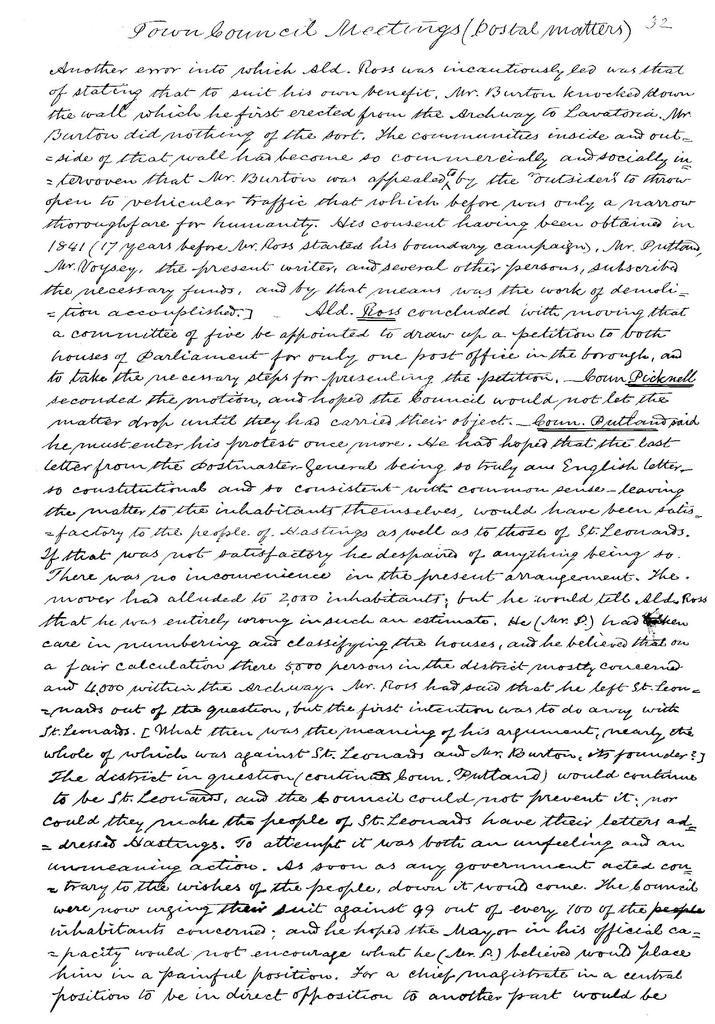 Town Council Meetings (Postal matters) 32
Another error into which Ald. Ross was incautiously led was that
of stating that to suit his own benefit, Mr. Burton knocked down
the wall which he first erected from the Archway to Lavatoria. Mr.
Burton did nothing of the sort. The communities inside and out=
=side of that wall had become so commercially and socially in=
=terwoven that Mr. Burton was appealed to by the "outsiders" to throw
open to vehicular traffic that which before was only a narrow
thoroughfare for humanity. His consent having been obtained in
1841 (17 years before Mr. Ross started his boundary campaign), Mr. Putland,
Mr. Voysey, the present writer, and several other persons, subscribed
the necessary funds, and by that means was the work of demoli=
=tion accomplished.] Ald. Ross concluded with moving that
a committee of five be appointed to draw up a petition to both
houses of Parliament for only one post office in the borough, and
to take the necessary steps for presenting the petition. — Coun. Picknell
seconded the motion, and hoped the Council would not let the
matter drop until they had carried their object. — Coun. Putland said
he must enter his protest once more. He had hoped that the last
letter from the Postmaster-General being so truly an English letter—
so constitutional and so consistent with common sense—leaving
the matter to the inhabitants themselves, would have been satis=
=factory to the people of Hastings as well as to those of St. Leonards.
If that was not satisfactory he despaired of anything being so.
There was no inconvenience in the present arrangement. The
mover had alluded to 2,000 inhabitants; but he would tell Ald. Ross
that he was entirely wrong in such an estimate. He (Mr. P.) had taken
care in numbering and classifying the houses, and he believed that on
a fair calculation there 5,000 persons in the district mostly concerned
and 4,000 within the Archway. Mr. Ross had said that he left St. Leon=
=nards out of the question, but the first intention was to do away with
St. Leonards. [What then was the meaning of his argument, nearly the
whole of which was against St. Leonards and Mr. Burton, its founder?]
The district in question (contin Coun. Putland) would continue
to be St. Leonards, and the Council could not prevent it; nor
could they make the people of St. Leonards have their letters ad=
=dressed Hastings. To attempt it was both an unfeeling and an
unmeaning action. As soon as any government acted con=
=trary to the wishes of the people, down it would come. The Council
were now urging their suit against 99 out of every 100 of the people
inhabitants concerned; and he hoped the Mayor in his official ca=
=pacity would not encourage what he (Mr. P.) believed would place
him in a painful position. For a chief magistrate in a central
position to be in direct opposition to another part would be